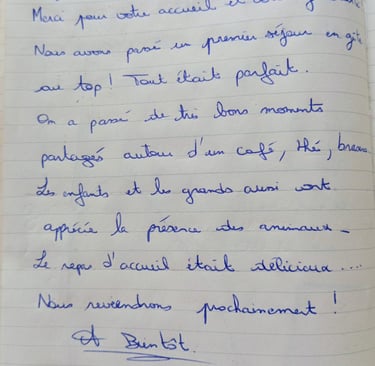 Merci pour votre accueil et
Nous avons passé un premier séjour en gîte
au top! Tout était parfait.
On a passé de très bons moments
partagés autour d'un café, thé,
Les enfants et les grands aussi ont
apprécié la présence des animaux -
Le repas d'accueil était délicieux ....
Nous reviendrons prochainement!
A Bientôt.